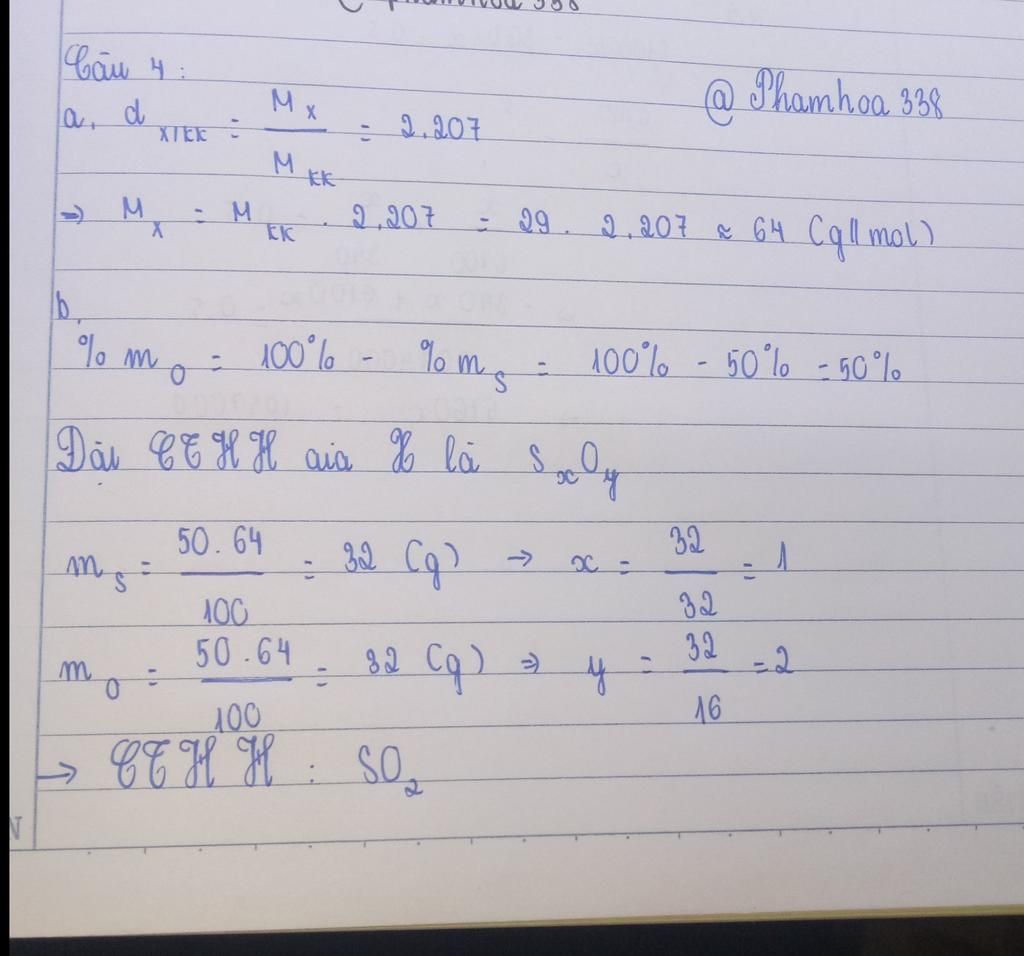 Câu 4 :
@ Phamhoa 338
a, d X/KK = M X / M KK = 2,207
=> M X = M KK . 2,207 = 29 . 2,207 ≈ 64 (g/mol)
b,
% m O = 100% - % m S = 100% - 50% = 50%
Đặt CTHH của X là S x O y
m S = 50.64 / 100 = 32 (g) => x = 32 / 32 = 1
m O = 50.64 / 100 = 32 (g) => y = 32 / 16 = 2
→ CTHH : SO 2